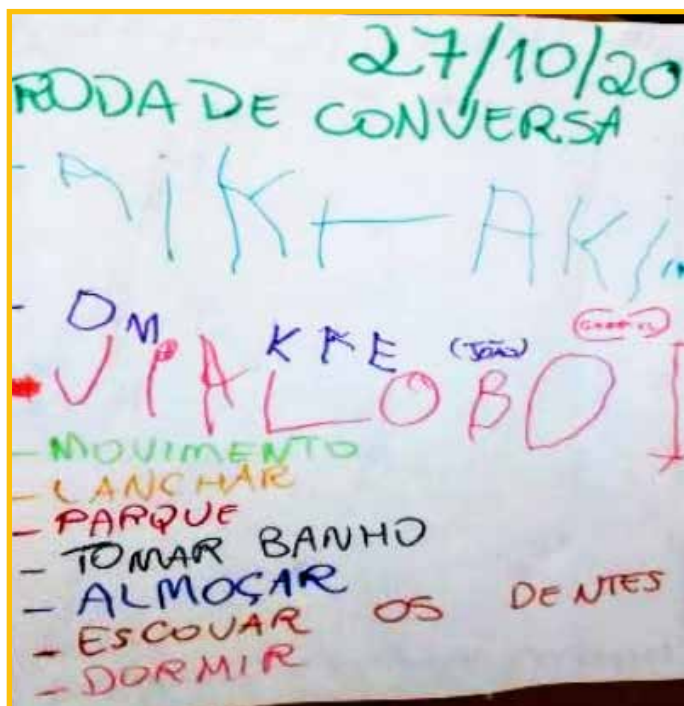 27/10/20
RODA DE CONVERSA
- AIKHAKI
- OM KKE (JOÃO)
- VIPALOBOI
- MOVIMENTO
- LANCHAR
- PARQUE
- TOMAR BANHO
- ALMOÇAR
- ESCOVAR OS DENTES
- DORMIR